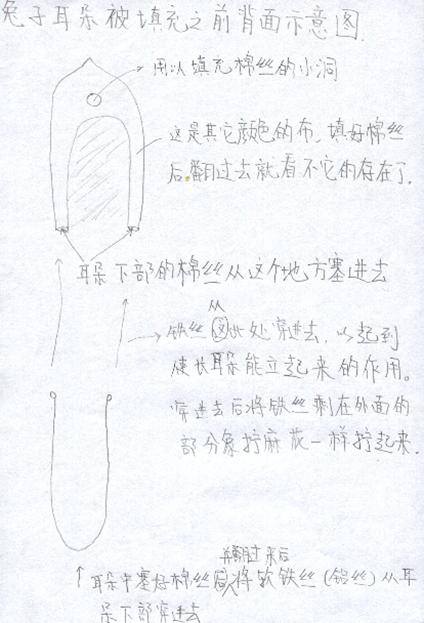 兔子耳朵被填充之前背面示意图.
用以填充棉丝的小洞
这是其它颜色的布, 填好棉丝
后.翻过去就看不它的存在了.
耳朵下部的棉丝从这个地方塞进去
从
铁丝这此处穿进去, 以起到
使长耳朵能立起来的作用。
穿进去后将铁丝剩在外面的
部分象拧麻花一样拧起来.
并翻过来后
耳朵中塞好棉丝 将软铁丝(铝丝)从耳
朵下部穿进去